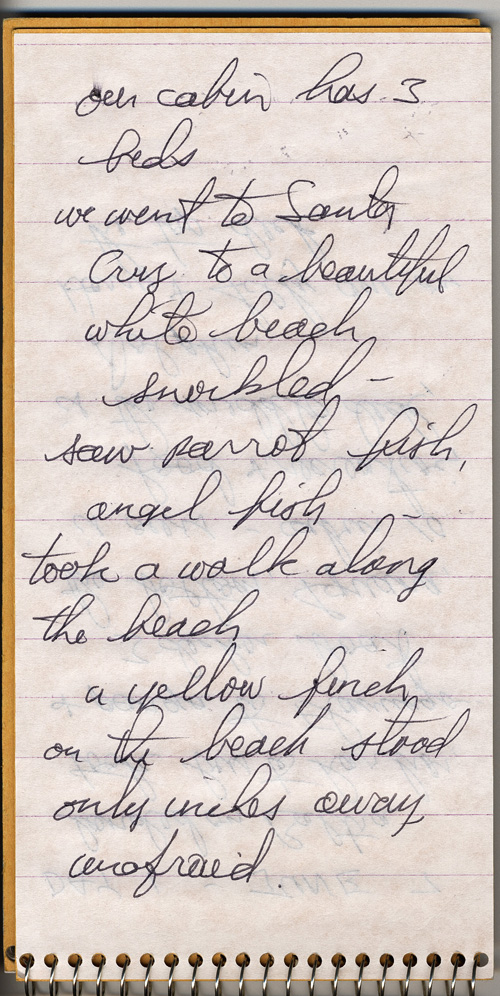 our cabin has 3
beds
we went to Santa
Cruz to a beautiful
white beach
snorkled -
saw parrot fish,
angel fish -
took a walk along
the beach
a yellow finch
on the beach stood
only inches away
unafraid.